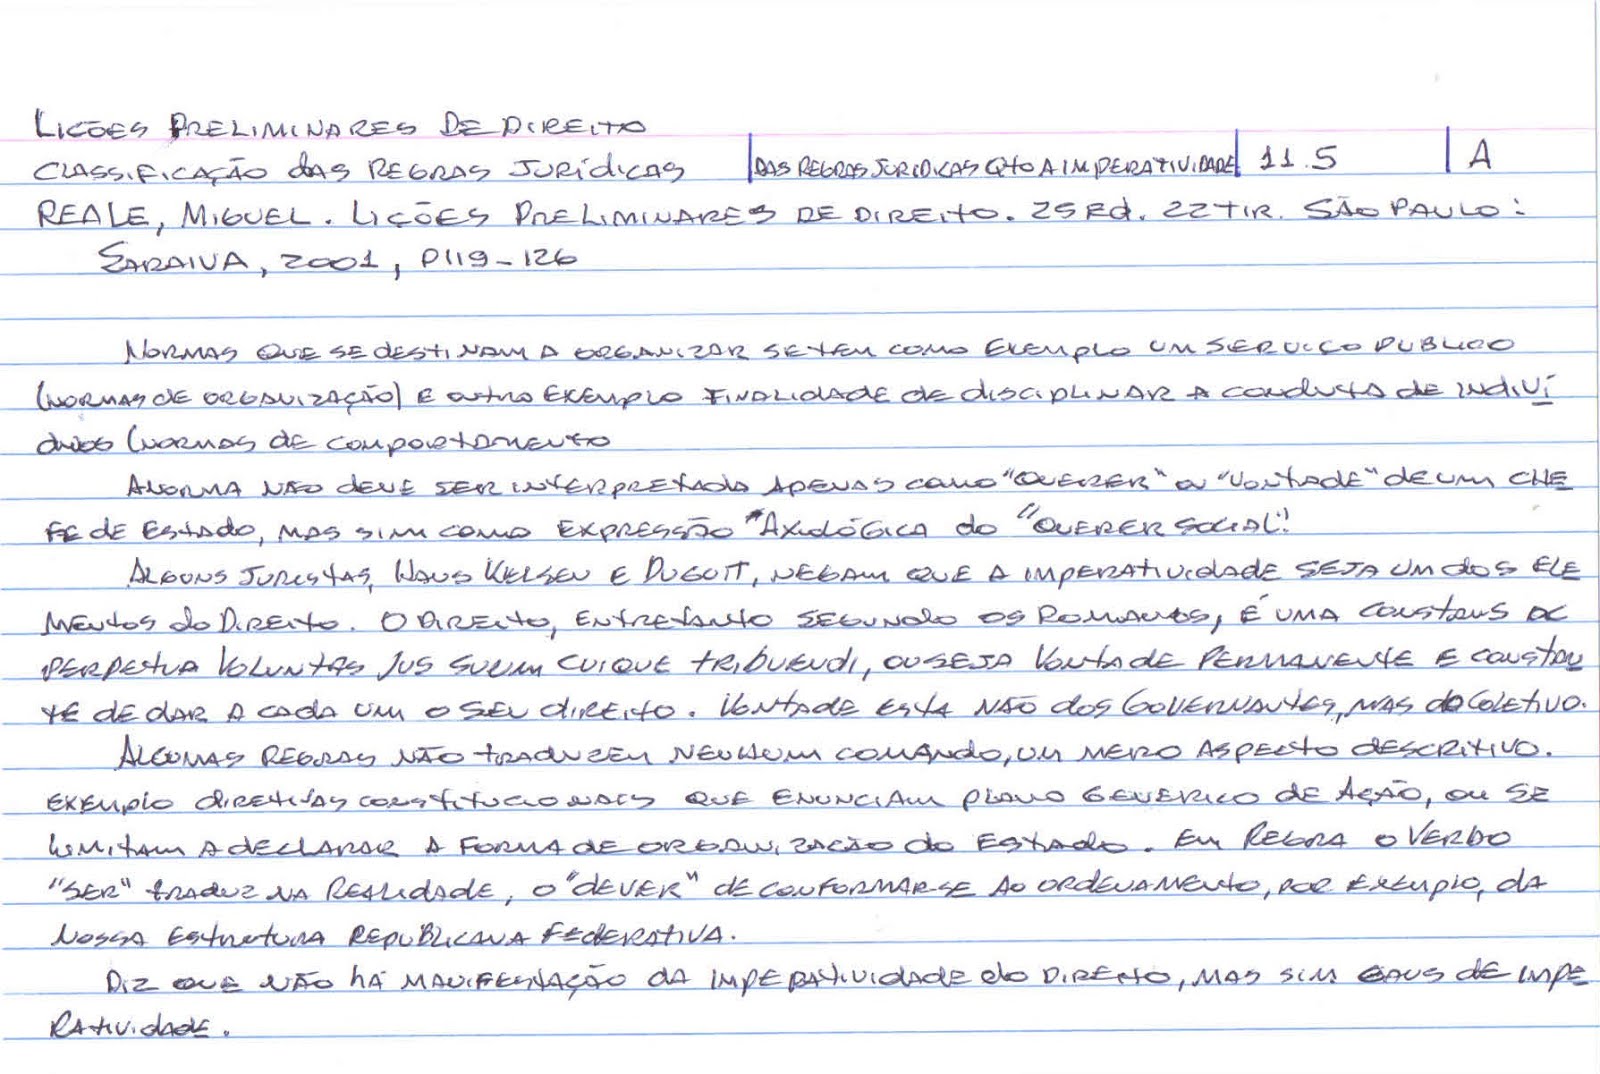 LIÇÕES PRELIMINARES DE DIREITO
CLASSIFICAÇÃO DAS REGRAS JURÍDICAS | DAS REGRAS JURIDICAS QTO A IMPERATIVIDADE | 11.5 | A
REALE, MIGUEL. LIÇÕES PRELIMINARES DE DIREITO. 25 Ed. 22 TIR. SÃO PAULO:
SARAIVA, 2001, P119-126
NORMAS QUE SE DESTINAM A ORGANIZAR SE TEM COMO EXEMPLO UM SERVIÇO PUBLICO
(NORMAS DE ORGANIZAÇÃO) E OUTRO EXEMPLO FINALIDADE DE DISCIPLINAR A CONDUTA DE INDIVÍ
DUOS (NORMAS DE COMPORTAMENTO
A NORMA NÃO DEVE SER INTERPRETADA APENAS COMO "QUERER" OU "VONTADE" DE UM CHE
FE DE ESTADO, MAS SIM COMO EXPRESSÃO "AXIOLÓGICA DO "QUERER SOCIAL".
ALGUNS JURISTAS, HANS KELSEN E DUGUIT, NEGAM QUE A IMPERATIVIDADE SEJA UM DOS ELE
MENTOS DO DIREITO. O DIREITO, ENTRETANTO SEGUNDO OS ROMANOS, É UMA CONSTANS AC
PERPETUA VOLUNTAS JUS SUUM CUIQUE TRIBUENDI, OU SEJA VONTADE PERMANENTE E CONSTAN
TE DE DAR A CADA UM O SEU DIREITO. VONTADE ESTA NÃO DOS GOVERNANTES, MAS DO COLETIVO.
ALGUMAS REGRAS NÃO TRADUZEM NENHUM COMANDO, UM MERO ASPECTO DESCRITIVO.
EXEMPLO DIRETIVAS CONSTITUCIONAIS QUE ENUNCIAM PLANO GENERICO DE AÇÃO, OU SE
LIMITAM A DECLARAR A FORMA DE ORGANIZAÇÃO DO ESTADO. EM REGRA O VERBO
"SER" TRADUZ NA REALIDADE, O "DEVER" DE CONFORMAR-SE AO ORDENAMENTO, POR EXEMPLO, DA
NOSSA ESTRUTURA REPUBLICANA FEDERATIVA.
DIZ QUE NÃO HÁ MANIFESTAÇÃO DA IMPERATIVIDADE DO DIREITO, MAS SIM GAUS DE IMPE
RATIVIDADE.